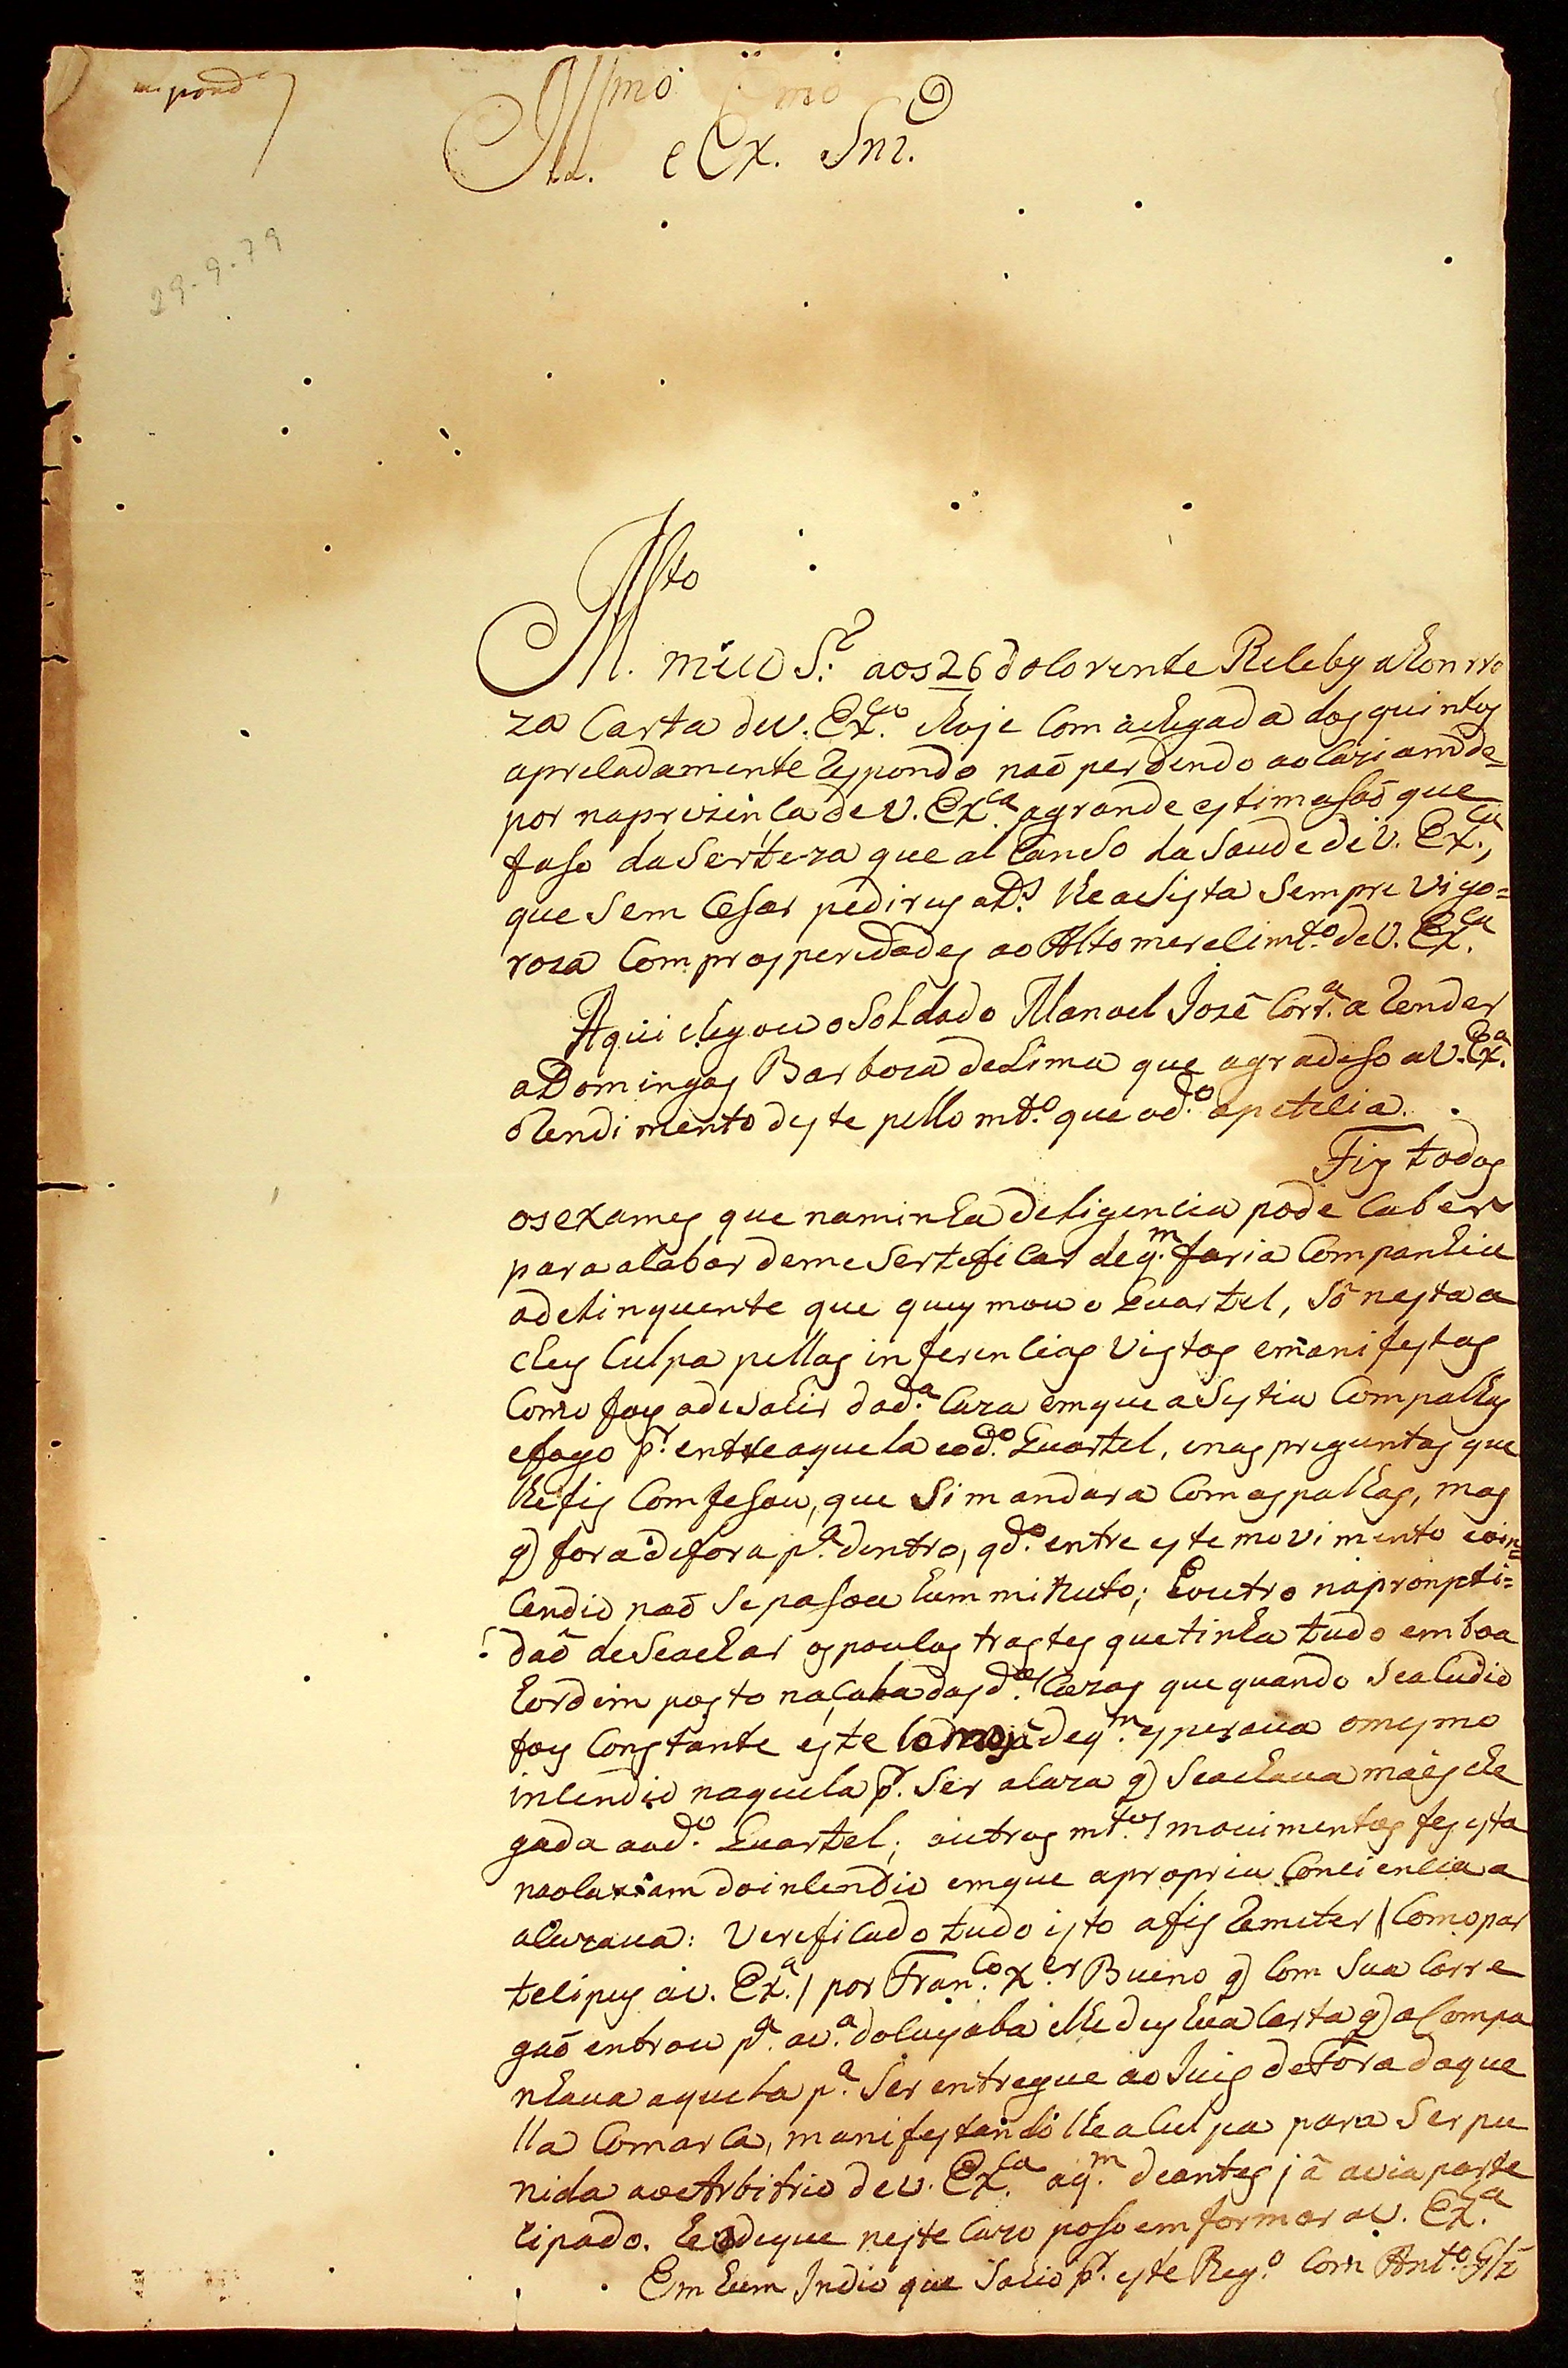 respond.
Ill.mo e Ex.mo Snr.
29-9-79
M.to meu S.r aos 26 do Corente Reseby a Honrro
za Carta de V. Ex.cia e hoje Com a chegada dos quintos
apresadamente Respondo naõ perdendo aocaziam de=
por naprezença de V. Ex.ca agrande estimasaõ que
faso da Serteza que alcanso da Saude de V. Ex.ca,
que Sem Cesar pedirey a D.s lhe acista Sempre vigo=
roza Com prosperidades ao Alto merecim.to de V. Ex.ca
Aqui chegou o Soldado Manoel Jozê Corr.a a Render
a Domingos Barboza de Lima que agradeso a V. Ex.a
o Rendimento deste pello m.to que o d.o apetecia.
Fis todos
os exames que naminha deligencia pode Caber
para acabar deme Serteficar de q.m faria Companhia
a delinquente que queymou o Quartel, Sô nesta a
chey Culpa pellas inferencias vistas e manifestas
Como foy a de Sahir da d.a Caza em que a Sistia Com palhas
e fogo p.r entre aquela e o d.o Quartel, e nas preguntas que
lhe fis Comfesou, que Si mandara Com as palhas, mas
q) fora de fora p.a dentro, q.do entre este movimento e o in=
Cendio naõ Se pasou hum minuto; Houtro napronpti=
daõ de Se achar os poucos trastes que tinha tudo em boa
hordem posto na das d.as Cazas que quando Se acudio
foy Constante este de q.m esperava o mesmo
incendio naquela p.r Ser a Caza q) Se achava maes che
gada ao d.o Quartel; outros m.tos movimentos fes esta
na ocaziam do incendio em que a propria Conciencia a
acuzava: Verificado tudo isto a fis Remeter / Como par
telipey a V. Ex.a / por Fran.co X.er Bueno q) Com Sua Corre
gaõ entrou p.a a V.a do Cuyaba e lhe dey hua Carta q) a Compa
nhava aquela p.a Ser entregue ao Juis de Fora daque
lla Comarca, manifestandolhe a Culpa para Ser pu
nida ao Arbitrio de V. Ex.ca aq.m de antes jâ avia parte
cipado. He o de que neste Cazo poso emformar a V. Ex.ca
Em hum Indio que Sahio p.r este Reg.o Com Ant.o Glz